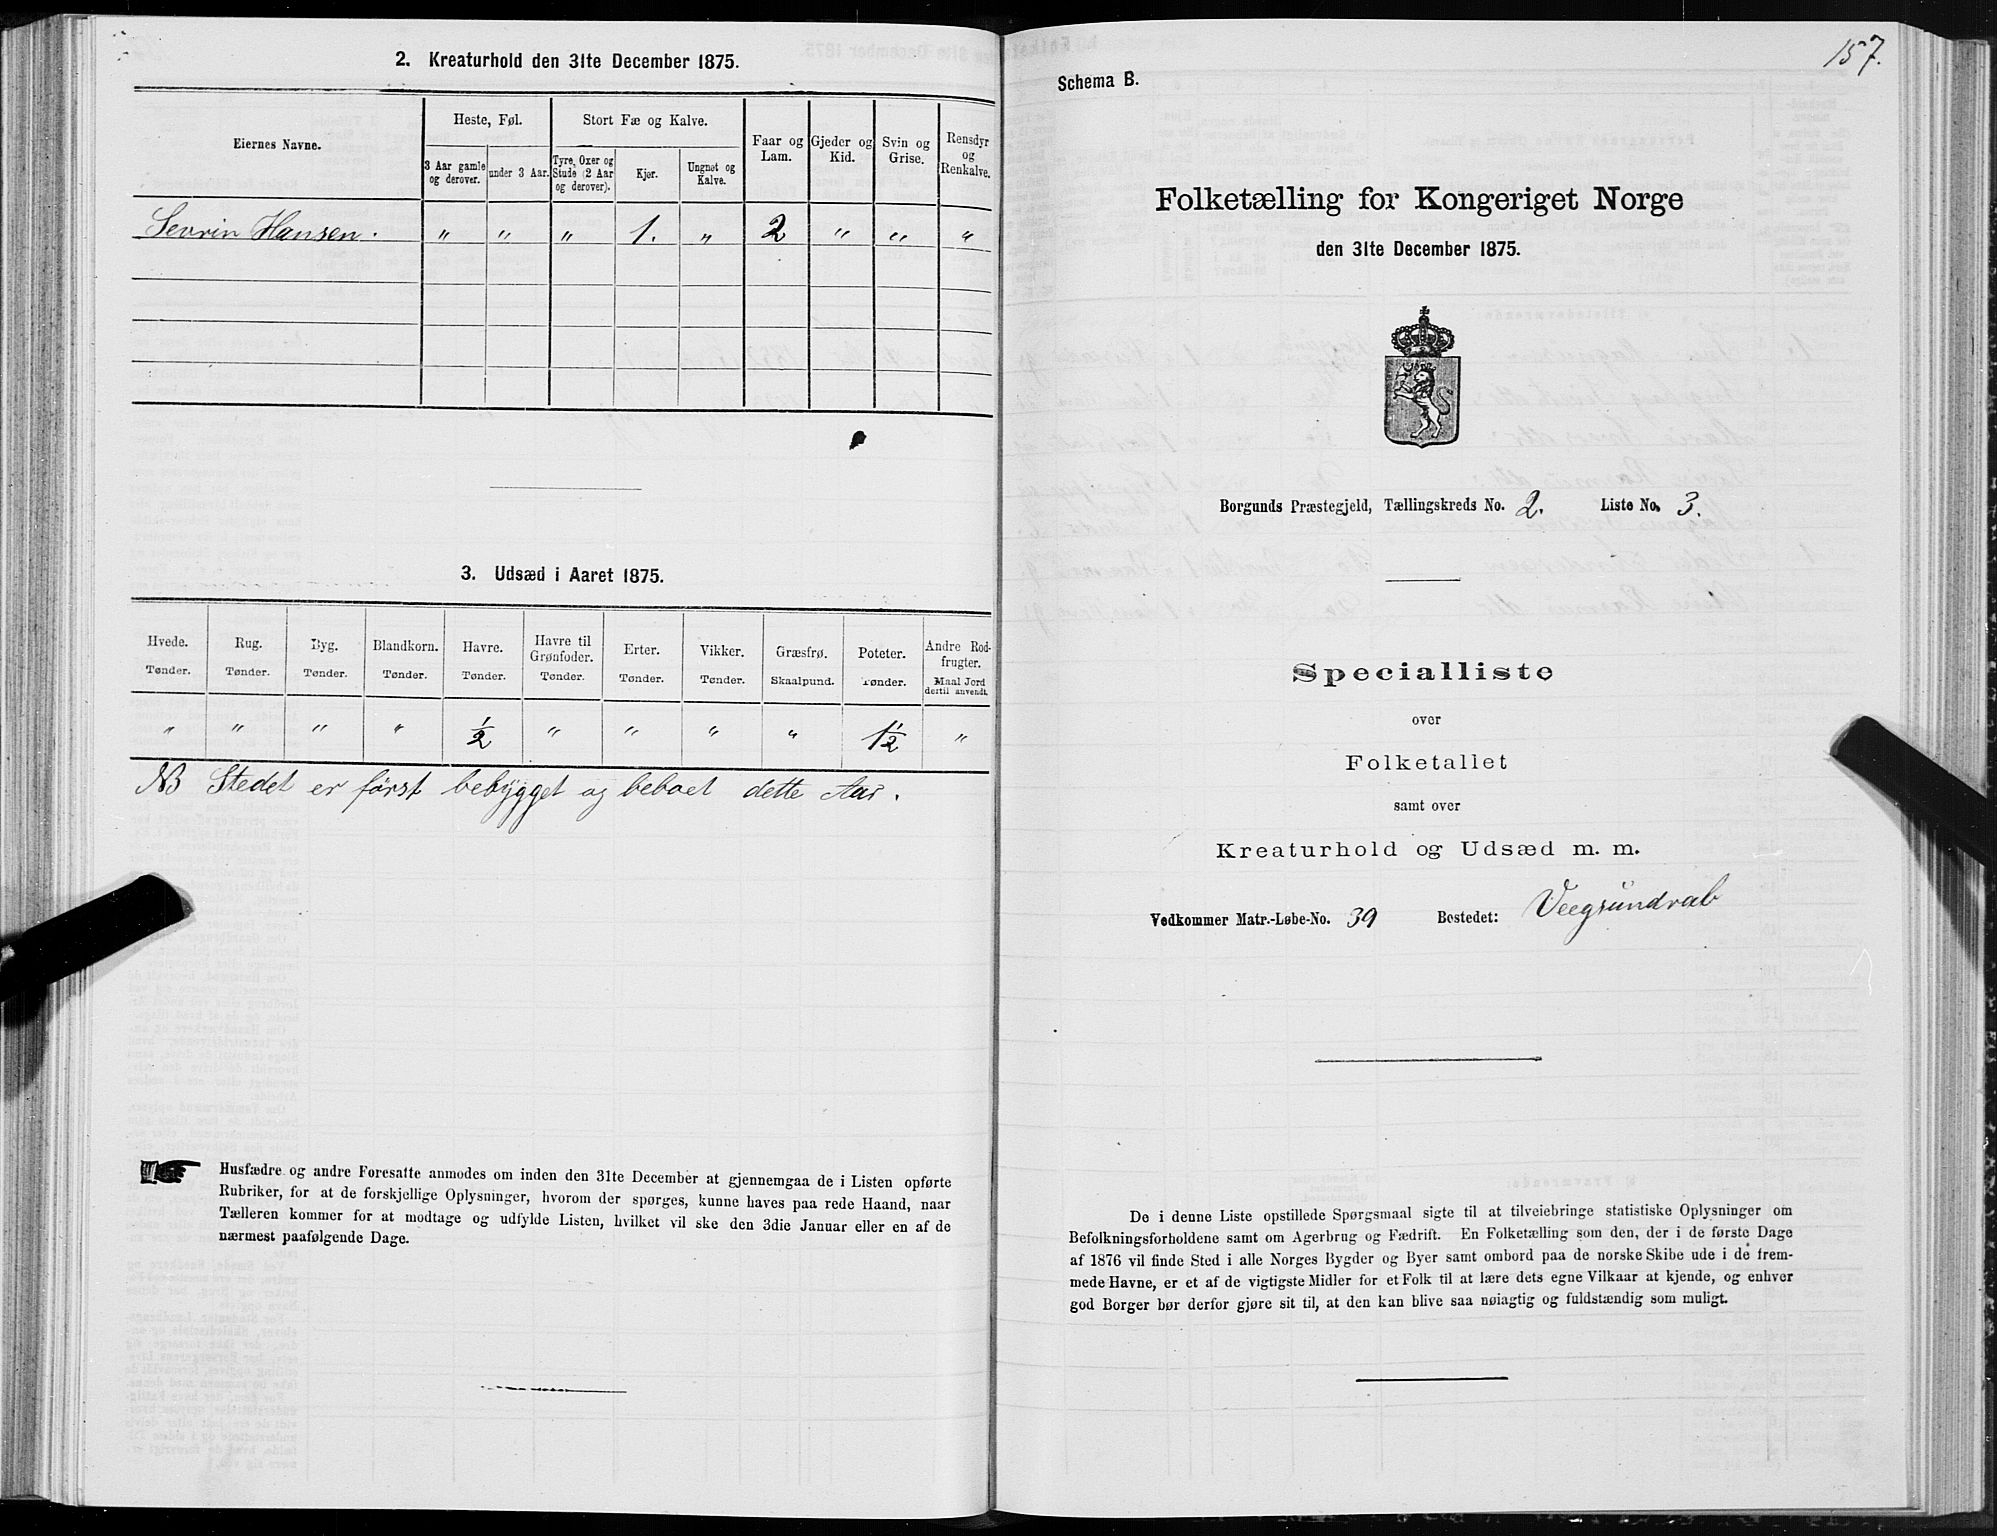 2. Kreaturhold den 31te December 1875.
Eiernes Navne.
Heste, Føl.
Stort Fæ og Kalve.
Faar og Lam.
Gjeder og Kid.
Svin og Grise.
Rensdyr og Renkalve.
3 Aar gamle og derover.
under 3 Aar.
Tyre, Oxer og Stude (2 Aar og derover).
Kjør.
Ungnøt og Kalve.
Sevrin Hansen. " " " 1. " 2 " " "
3. Udsæd i Aaret 1875.
Hvede. Rug. Byg. Blandkorn. Havre. Havre til Grønfoder. Erter. Vikker. Græsfrø. Poteter. Andre Rodfrugter.
Tønder. Tønder. Tønder. Tønder. Tønder. Tønder. Tønder. Tønder. Skaalpund. Tønder. Maal Jord dertil anvendt.
" " " " 1/2 " " " " 1 1/2 "
NB Stedet er først bebygget og beboet dette Aar.
Husfædre og andre Foresatte anmodes om inden den 31te December at gjennemgaa de i Listen opførte
Rubriker, for at de forskjellige Oplysninger, hvorom der spørges, kunne haves paa rede Haand, naar
Tælleren kommer for at modtage og udfylde Listen, hvilket vil ske den 3die Januar eller en af de
nærmest paafølgende Dage.
157.
Schema B.
Folketælling for Kongeriget Norge
den 31te December 1875.
Borgunds Præstegjeld, Tællingskreds No. 2. Liste No. 3.
Specialliste
over
Folketallet
samt over
Kreaturhold og Udsæd m. m.
Vedkommer Matr.-Løbe-No. 39 Bostedet: Veegsundrab
De i denne Liste opstillede Spørgsmaal sigte til at tilveiebringe statistiske Oplysninger om
Befolkningsforholdene samt om Agerbrug og Fædrift. En Folketælling som den, der i de første Dage
af 1876 vil finde Sted i alle Norges Bygder og Byer samt ombord paa de norske Skibe ude i de frem-
mede Havne, er et af de vigtigste Midler for et Folk til at lære dets egne Vilkaar at kjende, og enhver
god Borger bør derfor gjøre sit til, at den kan blive saa nøiagtig og fuldstændig som muligt.